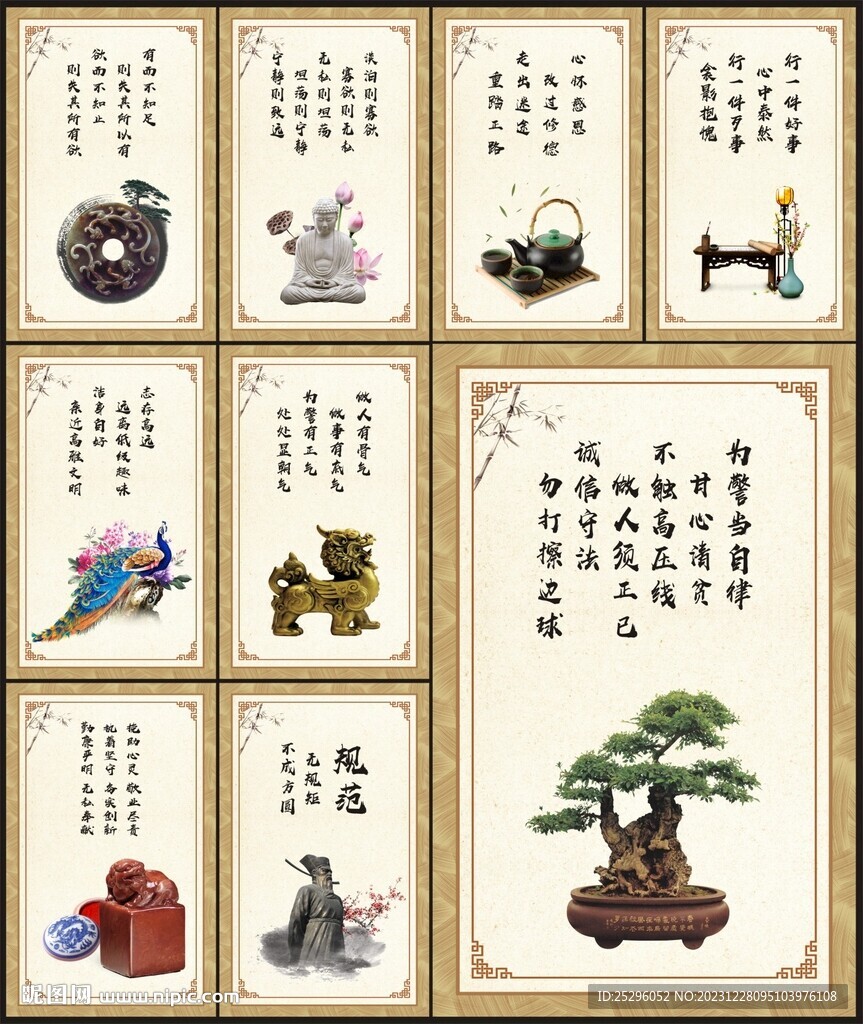 有而不知足
则失其所以有
欲而不知止
则失其所有欲
淡泊则寡欲
寡欲则无私
无私则坦荡
坦荡则宁静
宁静则致远
心怀感恩
改过修德
走出迷途
重踏正路
行一件好事
心中泰然
行一件歹事
衾影抱愧
志存高远
远离低级趣味
洁身自好
亲近高雅文明
做人有骨气
做事有底气
为警有正气
处处显朝气
为警当自律
甘心清贫
不触高压线
做人须正己
诚信守法
勿打擦边球
助心灵 敬业尽责
执着坚守 务实创新
勤廉严明 无私奉献
规范
无规矩
不成方圆
昵图网 www.nipic.com
ID:25296052 NO:20231228095103976108